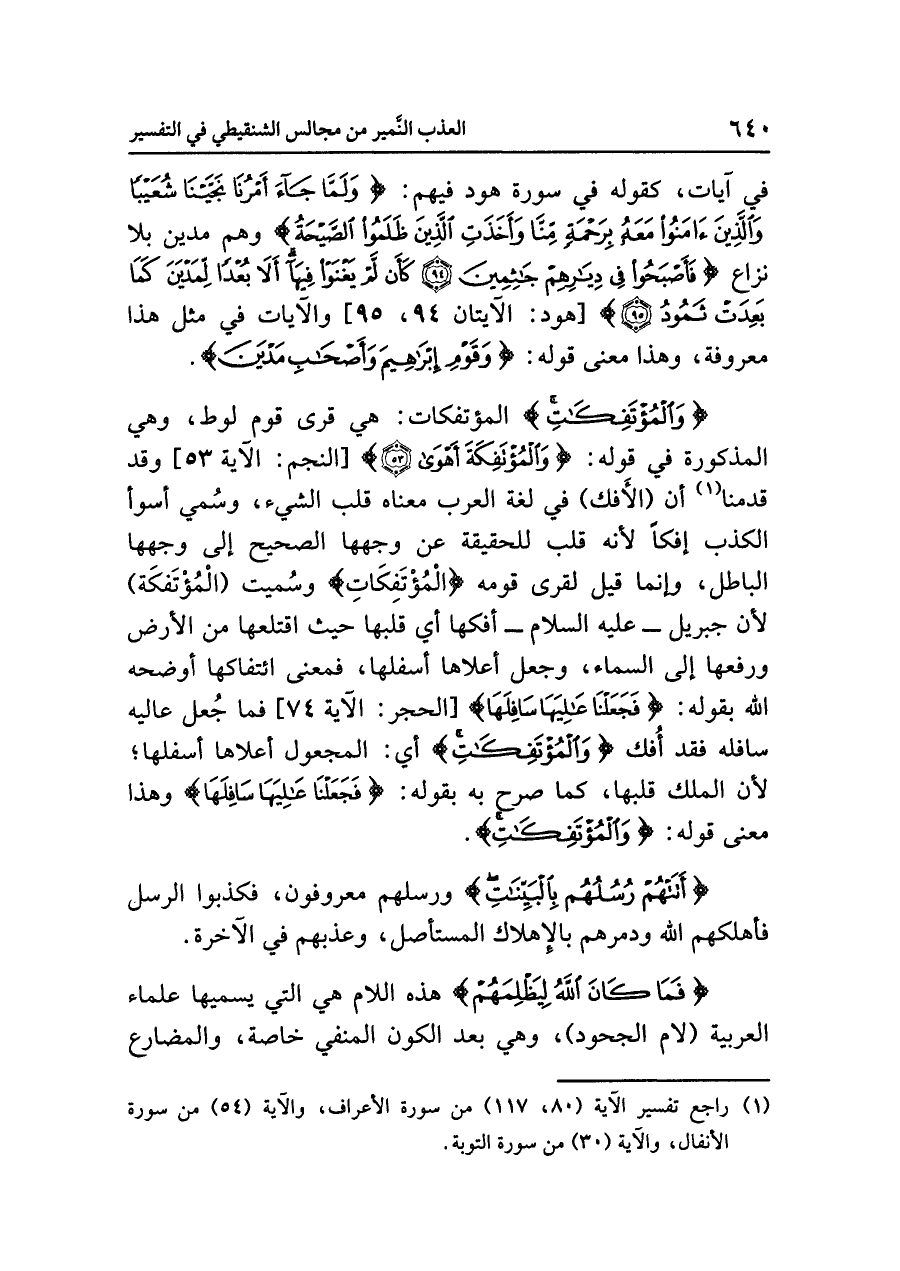 ٦٤٠ العذب النَّمير من مجالس الشنقيطي في التفسير
في آيات، كقوله في سورة هود فيهم: ﴿ وَلَمَّا جَآءَ أَمْرُنَا نَجَّيْنَا شُعَيْبًا
وَٱلَّذِينَ ءَامَنُواْ مَعَهُۥ بِرَحْمَةٍ مِّنَّا وَأَخَذَتِ ٱلَّذِينَ ظَلَمُواْ ٱلصَّيْحَةُ ﴾ وهم مدين بلا
نزاع ﴿ فَأَصْبَحُواْ فِى دِيَٰرِهِمْ جَٰثِمِينَ ٩٤ كَأَن لَّمْ يَغْنَوْاْ فِيهَآ أَلَا بُعْدًا لِّمَدْيَنَ كَمَا
بَعِدَتْ ثَمُودُ ٩٥ ﴾ [هود: الآيتان ٩٤، ٩٥] والآيات في مثل هذا
معروفة، وهذا معنى قوله: ﴿ وَقَوْمِ إِبْرَٰهِيمَ وَأَصْحَٰبِ مَدْيَنَ ﴾.
﴿ وَٱلْمُؤْتَفِكَٰتِ ﴾ المؤتفكات: هي قرى قوم لوط، وهي
المذكورة في قوله: ﴿ وَٱلْمُؤْتَفِكَةَ أَهْوَىٰ ٥٣ ﴾ [النجم: الآية ٥٣] وقد
قدمنا(١) أن (الأَفك) في لغة العرب معناه قلب الشيء، وسُمي أسوأ
الكذب إفكاً لأنه قلب للحقيقة عن وجهها الصحيح إلى وجهها
الباطل، وإنما قيل لقرى قومه ﴿الْمُؤْتَفِكَاتِ﴾ وسُميت (الْمُؤْتَفكَة)
لأن جبريل ـ عليه السلام ـ أفكها أي قلبها حيث اقتلعها من الأرض
ورفعها إلى السماء، وجعل أعلاها أسفلها، فمعنى ائتفاكها أوضحه
الله بقوله: ﴿ فَجَعَلْنَا عَٰلِيَهَا سَافِلَهَا ﴾ [الحجر: الآية ٧٤] فما جُعل عاليه
سافله فقد أُفك ﴿ وَٱلْمُؤْتَفِكَٰتِ ﴾ أي: المجعول أعلاها أسفلها؛
لأن الملك قلبها، كما صرح به بقوله: ﴿ فَجَعَلْنَا عَٰلِيَهَا سَافِلَهَا ﴾ وهذا
معنى قوله: ﴿ وَٱلْمُؤْتَفِكَٰتِ ﴾.
﴿ أَتَتْهُمْ رُسُلُهُم بِٱلْبَيِّنَٰتِ ﴾ ورسلهم معروفون، فكذبوا الرسل
فأهلكهم الله ودمرهم بالإهلاك المستأصل، وعذبهم في الآخرة.
﴿ فَمَا كَانَ ٱللَّهُ لِيَظْلِمَهُمْ ﴾ هذه اللام هي التي يسميها علماء
العربية (لام الجحود)، وهي بعد الكون المنفي خاصة، والمضارع
(١) راجع تفسير الآية (٨٠، ١١٧) من سورة الأعراف، والآية (٥٤) من سورة
الأنفال، والآية (٣٠) من سورة التوبة.